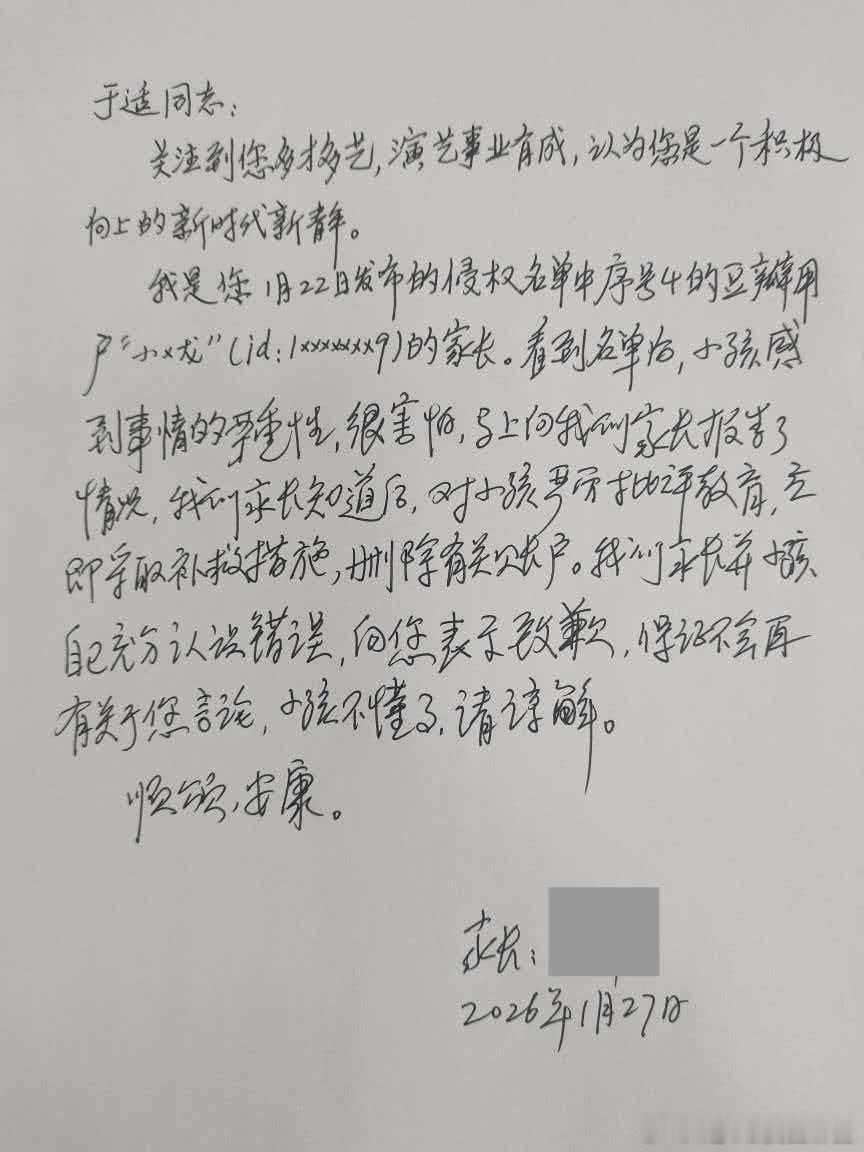 于适同志:
关注到您多才多艺,演艺事业有成,认为您是一个积极
向上的新时代新青年。
我是您1月22日发布的侵权名单中序号4的豆瓣用
户“小x龙”(id:1xxxxxxx9)的家长。看到名单后,小孩感
到事情的严重性,很害怕,马上向我们家长报告了
情况,我们家长知道后,对小孩严厉批评教育,立
即采取补救措施,删除有关账户。我们家长并小孩
自己充分认识错误,向您表示致歉,保证不会再
有关于您言论,小孩不懂事,请谅解。
顺颂,安康。
家长:
2026年1月27日